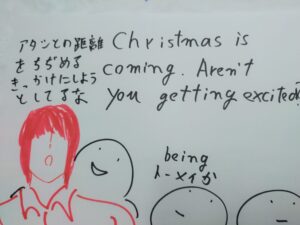 アタシとの距離
をちぢめる
きっかけにしよう
としてるな
Christmas is
coming. Aren't
you getting excited
being
トーメイか